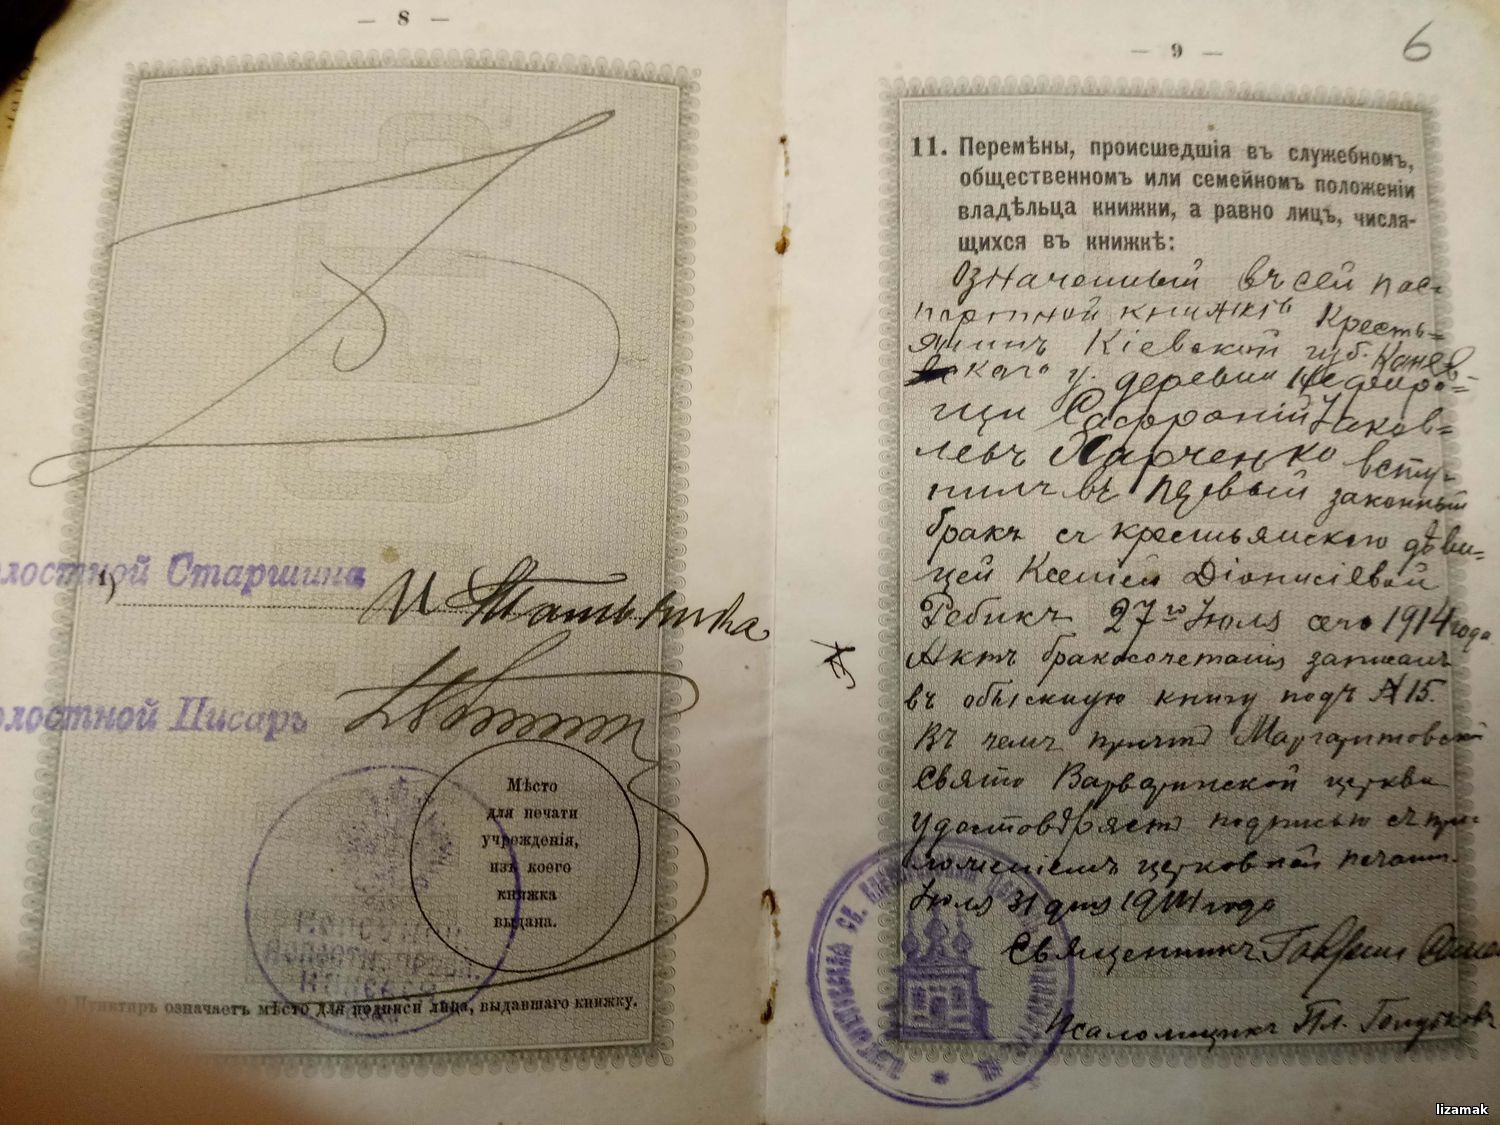 — 8 —
Волостной Старшина
1)
Волостной Писарь
Мѣсто
для печати
учрежденія,
изъ коего
книжка
выдана.
Пунктиръ означаетъ мѣсто для подписи лица, выдавшаго книжку.
— 9 —
6
11. Перемѣны, происшедшія въ служебномъ,
общественномъ или семейномъ положеніи
владѣльца книжки, а равно лицъ, числя-
щихся въ книжкѣ:
Означенный въ сей пас-
портной книжкѣ Кресть=
янинъ Кіевской губ. Канев
скаго у. деревни
Софроній Іаков=
левъ Харченко всту-
пилъ въ первый законный
бракъ съ крестьянскою дѣви=
цей Ксеніей Діонисіевой
Ребикъ 27го Іюля сего 1914 года
Актъ бракосочетанія записанъ
въ обыскную книгу подъ № 15.
Въ чемъ причтъ Маргаритовской
Свято Варваринской церкви
удостовѣряетъ подписью съ при-
ложеніемъ церковной печати.
Іюля 31 дня 1914 года
Священникъ Гавріилъ
Псаломщикъ Пл. Голубковъ
lizamak